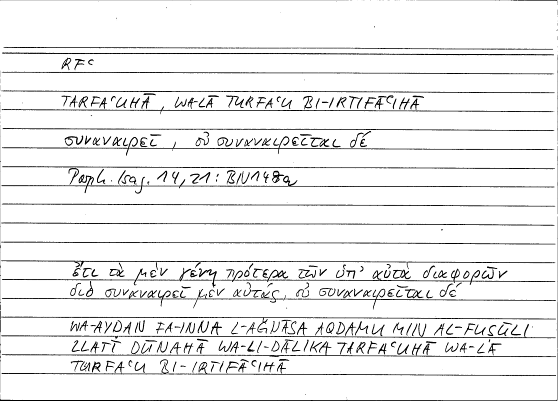 RFᶜ
TARFAᶜUHĀ, WA-LĀ TURFAᶜU BI-IRTIFĀᶜIHĀ
συναναιρεῖ, οὐ συναναιρεῖται δέ
Porph. Isag. 14,21: BN148a
ἔτι τὰ μὲν γένη πρότερα τῶν ὑπ' αὐτὰ διαφορῶν
διὸ συναναιρεῖ μὲν αὐτάς, οὐ συναναιρεῖται δέ
WA-AYḌAN FA-INNA L-AǦNĀSA AQDAMU MIN AL-FUṢŪLI
LLATĪ DŪNAHĀ WA-LI-ḎĀLIKA TARFAᶜUHĀ WA-LĀ
TURFAᶜU BI-IRTIFĀᶜIHĀ